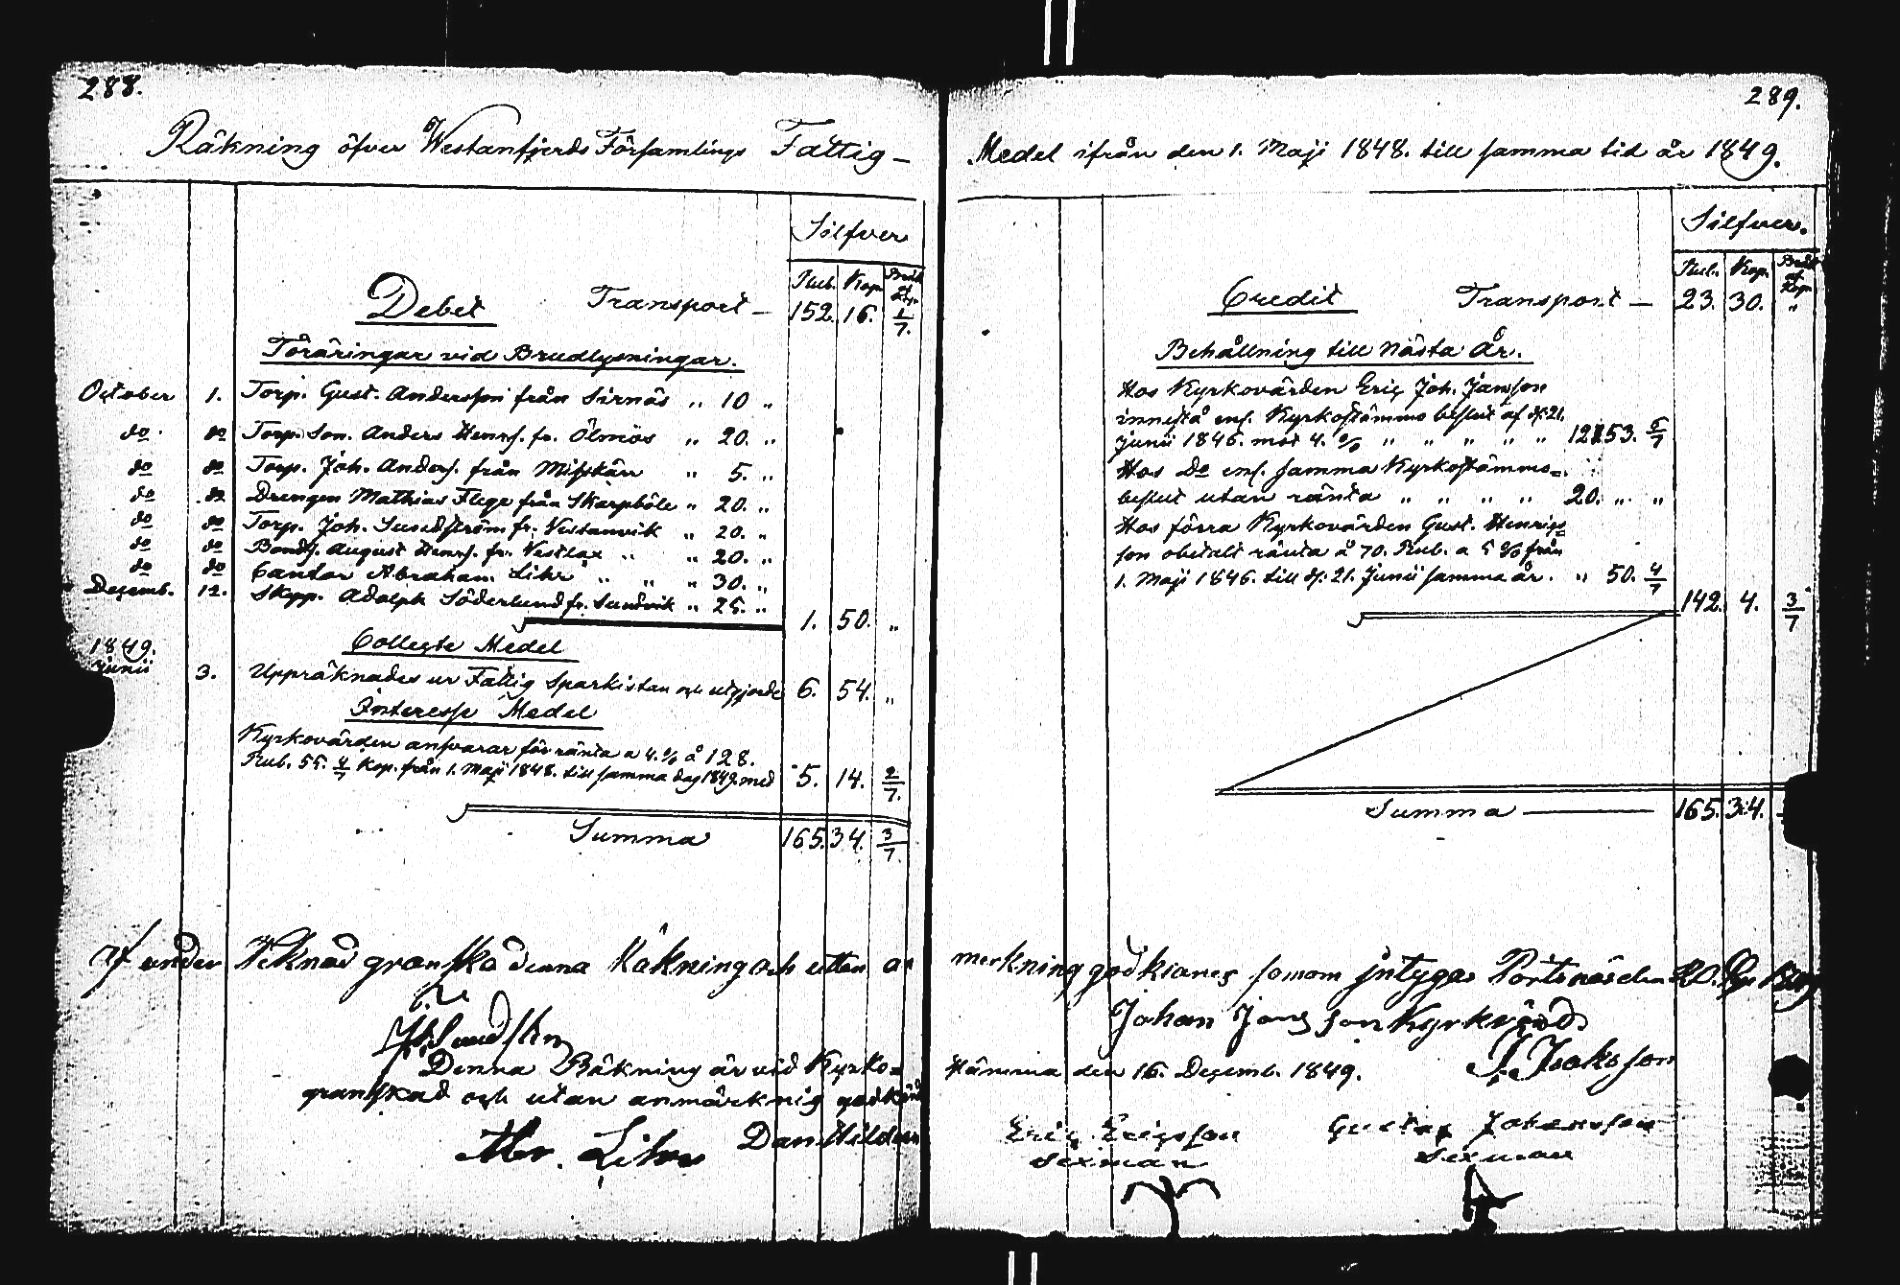 288.
Räkning öfver Westanfjerds Församlings Fattig-
Silfver
Rub. Kop. Bråk af Kop.
Debet Transport - 152. 16. 1/7.
Föräringar vid Brudlysningar.
October 1. Torp. Gust. Andersson från Sirnäs " 10 "
do do Torp. Son. Anders Henrs. fr. Ölmos " 20. "
do do Torp. Joh. Anders. från Misskär " 5. "
do do Drengen Mathias Flege från Skarpböle " 20. "
do do Torp. Joh. Sundström fr. Vestanvik " 20. "
do do Bonds. August Henrs. fr. Vestlax " " 20. "
do do Cantor Abraham Lihr " " " 30. "
Decemb. 12. Skepp. Adolph Söderlund fr. Sundvik " 25. "
1. 50. "
Collegte Medel
1849.
Junii 3. Uppräknades ur Fattig Sparkistan och utgjorde 6. 54. "
Interesse Medel
Kyrkovärden ansvarar för ränta a 4. % å 128.
Rub. 55. 4/7 Kop. från 1. Maji 1848. till samma dag 1849. med 5. 14. 2/7.
Summa 165. 34. 3/7
Af under Teknad granska denna Räkning och uttan an
Sundsten
Denna Räkning är vid Kyrko=
granskad och utan anmärkning godkänd
Abr. Lihr Dan Hilden
289.
Medel ifrån den 1. Maji 1848. till samma tid år 1849.
Silfver.
Rub. Kop. Bråk af Kop.
Credit Transport - 23. 30. "
Behållning till Nästa År.
Hos Kyrkovärden Eric Joh. Jansson
innestå enl. Kyrkostämmo beslut af d: 21.
Junii 1846. mot 4. % " " " " " 121 53. 6/7
Hos Do enl. samma Kyrkostämmo=
beslut utan ränta " " " " 20. " "
Hos förra Kyrkovärden Gust. Henrigs=
son obetalt ränta å 70. Rub. a 5 % från
1. Maji 1846. till d: 21. Junii samma år. " 50. 4/7
142. 4. 3/7
Summa 165. 34.
merkning godkianes somom intygas Pörtsnäs den
Johan Jansson Kyrkvärd
Stämma den 16. Decemb. 1849. J. Isaksson
Eric Ericsson Gustaf Johansson
Sexman Sexman